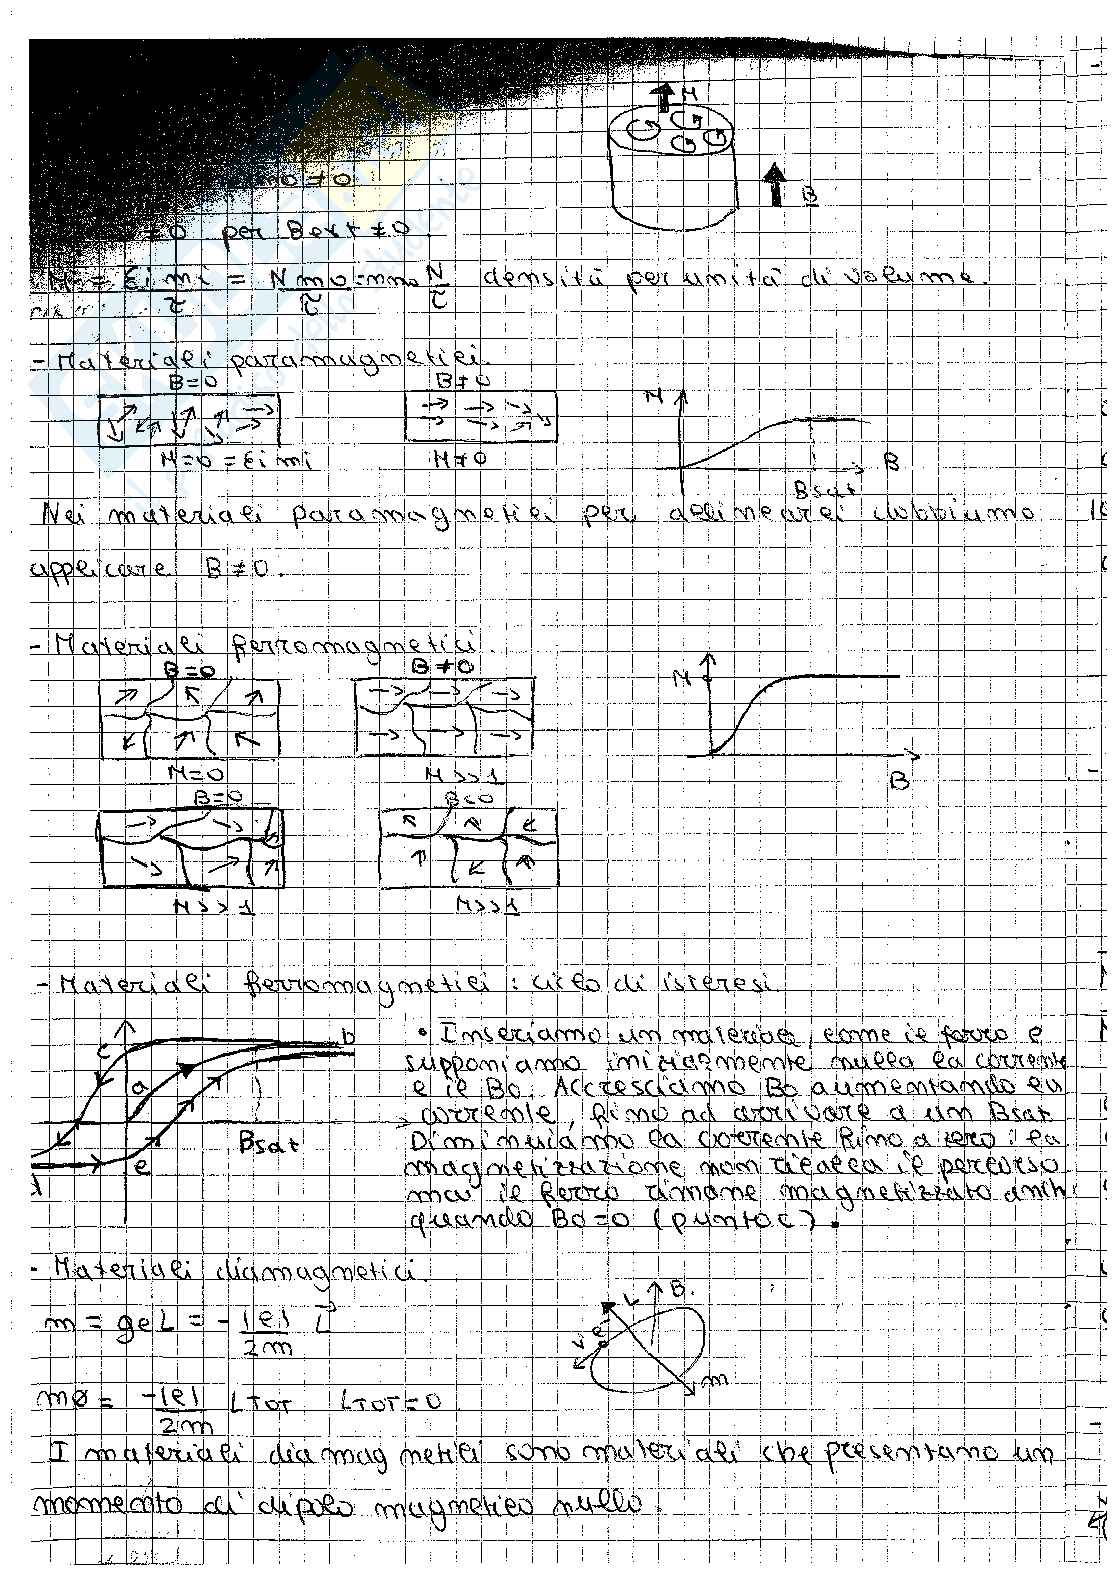 M
B
m0 ≠ 0
≠ 0 per Bext ≠ 0.
M = Σi mi / τ = N m0 / τ = nm0 N/τ densità per unità di volume.
- Materiali paramagnetici.
B=0
B≠0
M=0 = Σi mi
M≠0
M
B
Bsat
Nei materiali paramagnetici per allinearli dobbiamo
applicare B≠0.
- Materiali ferromagnetici.
B=0
B≠0
M=0
M>>1
M
B
B=0
B<0
M>>1
M>>1
- Materiali ferromagnetici: ciclo di isteresi
c
b
a
Bsat
d
e
• Inseriamo un materiale, come il ferro e
supponiamo inizialmente nulla la corrente
e il B0. Accresciamo B0 aumentando la
corrente, fino ad arrivare a un Bsat
Diminuiamo la corrente fino a zero: la
magnetizzazione non ricalca il percorso
ma il ferro rimane magnetizzato anch
quando B0=0 (punto c).
- Materiali diamagnetici.
m = geL = - |e| / 2m L
m0 = -|e| / 2m LTOT LTOT=0
B.
L
e-
v
m
I materiali diamagnetici sono materiali che presentano un
momento di dipolo magnetico nullo.